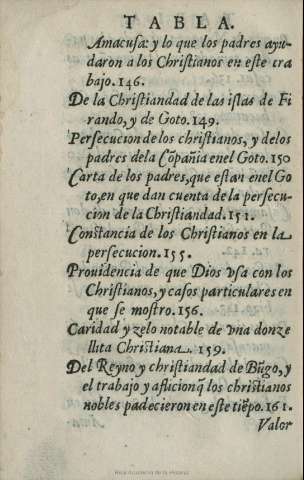 TABLA.
Amacusa: y lo que los padres ayu-
daron a los Christianos en este tra
bajo. 146.
De la Christiandad de las islas de Fi
rando, y de Goto. 149.
Persecucion de los christianos, y delos
padres dela Cõpañia enel Goto. 150
Carta de los padres, que estan enel Go
to, en que dan cuenta de la persecu-
cion de la Christiandad. 151.
Constancia de los Christianos en la
persecucion. 155.
Prouidencia de que Dios vsa con los
Christianos, y casos particulares en
que se mostro. 156.
Caridad y zelo notable de vna donze
llita Christiana. 159.
Del Reyno y christiandad de Bũgo, y
el trabajo y aflicion q̃ los christianos
nobles padecieron en este tiẽpo. 161.
Valor
Real Academia de la Historia